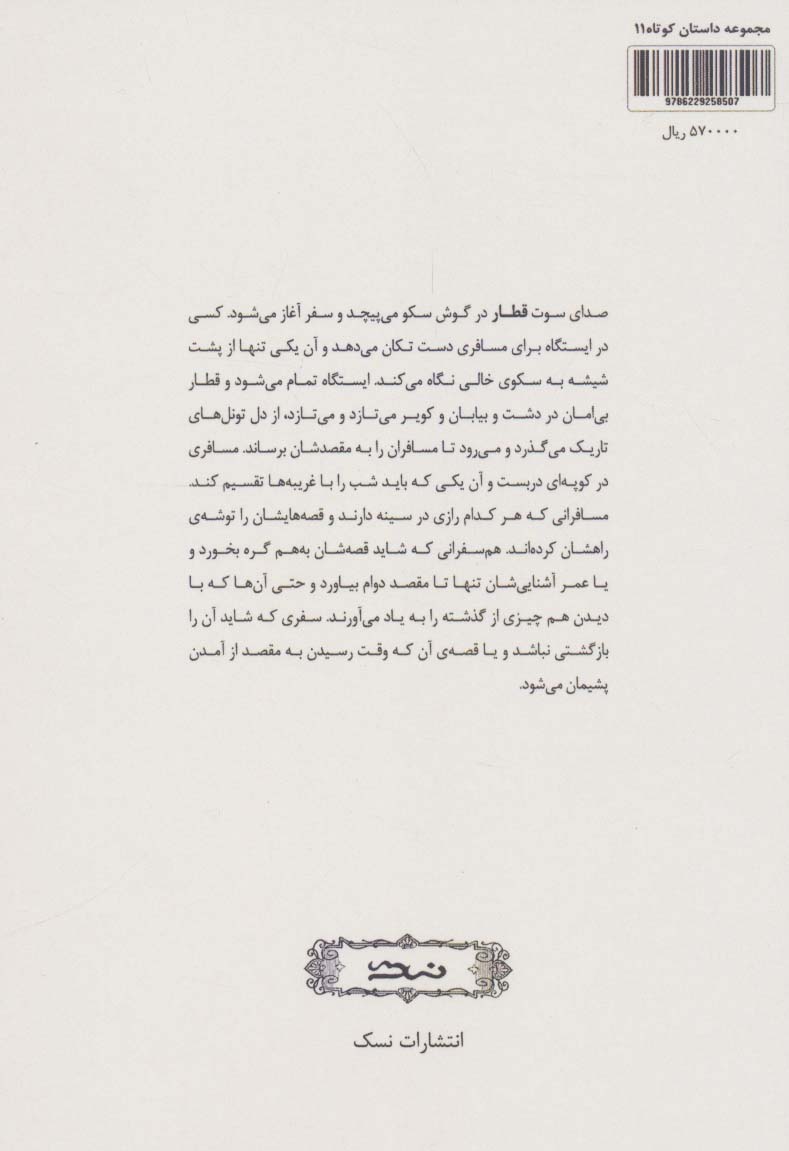 مجموعه داستان کوتاه ۱۱
9786229258507
۵۷۰۰۰۰ ریال
صدای سوت قطار در گوش سکو می‌پیچد و سفر آغاز می‌شود. کسی
در ایستگاه برای مسافری دست تکان می‌دهد و آن یکی تنها از پشت
شیشه به سکوی خالی نگاه می‌کند. ایستگاه تمام می‌شود و قطار
بی‌امان در دشت و بیابان و کویر می‌تازد و می‌تازد، از دل تونل‌های
تاریک می‌گذرد و می‌رود تا مسافران را به مقصدشان برساند. مسافری
در کوپه‌ای دربست و آن یکی که باید شب را با غریبه‌ها تقسیم کند.
مسافرانی که هر کدام رازی در سینه دارند و قصه‌هایشان را توشه‌ی
راهشان کرده‌اند. هم‌سفرانی که شاید قصه‌شان به‌هم گره بخورد و
یا عمر آشنایی‌شان تنها تا مقصد دوام بیاورد و حتی آن‌ها که با
دیدن هم چیزی از گذشته را به یاد می‌آورند. سفری که شاید آن را
بازگشتی نباشد و یا قصه‌ی آن که وقت رسیدن به مقصد از آمدن
پشیمان می‌شود.
نسک
انتشارات نسک